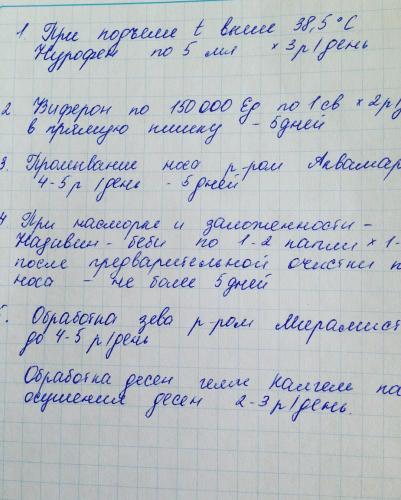 1. При подъеме t выше 38,5°C
Нурофен по 5 мл × 3 р/день
2. Виферон по 150 000 Ед по 1 св × 2 р/
в прямую кишку - 5 дней
3. Промывание носа р-ром Аквамар
4-5 р/день - 5 дней
4 При насморке и заложенности -
Називин - беби по 1-2 капли × 1-
после предварительной очистки п
носа - не более 5 дней
5. Обработка зева р-ром Мирамист
до 4-5 р/день
Обработка десен гелем Камгель по
осушения десен 2-3 р/день.